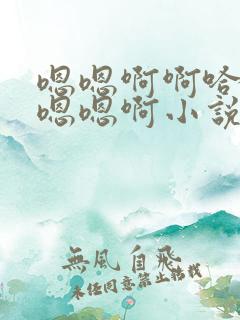 嗯嗯啊啊哈
嗯嗯啊小説
無風自飛
未经同意禁止转载